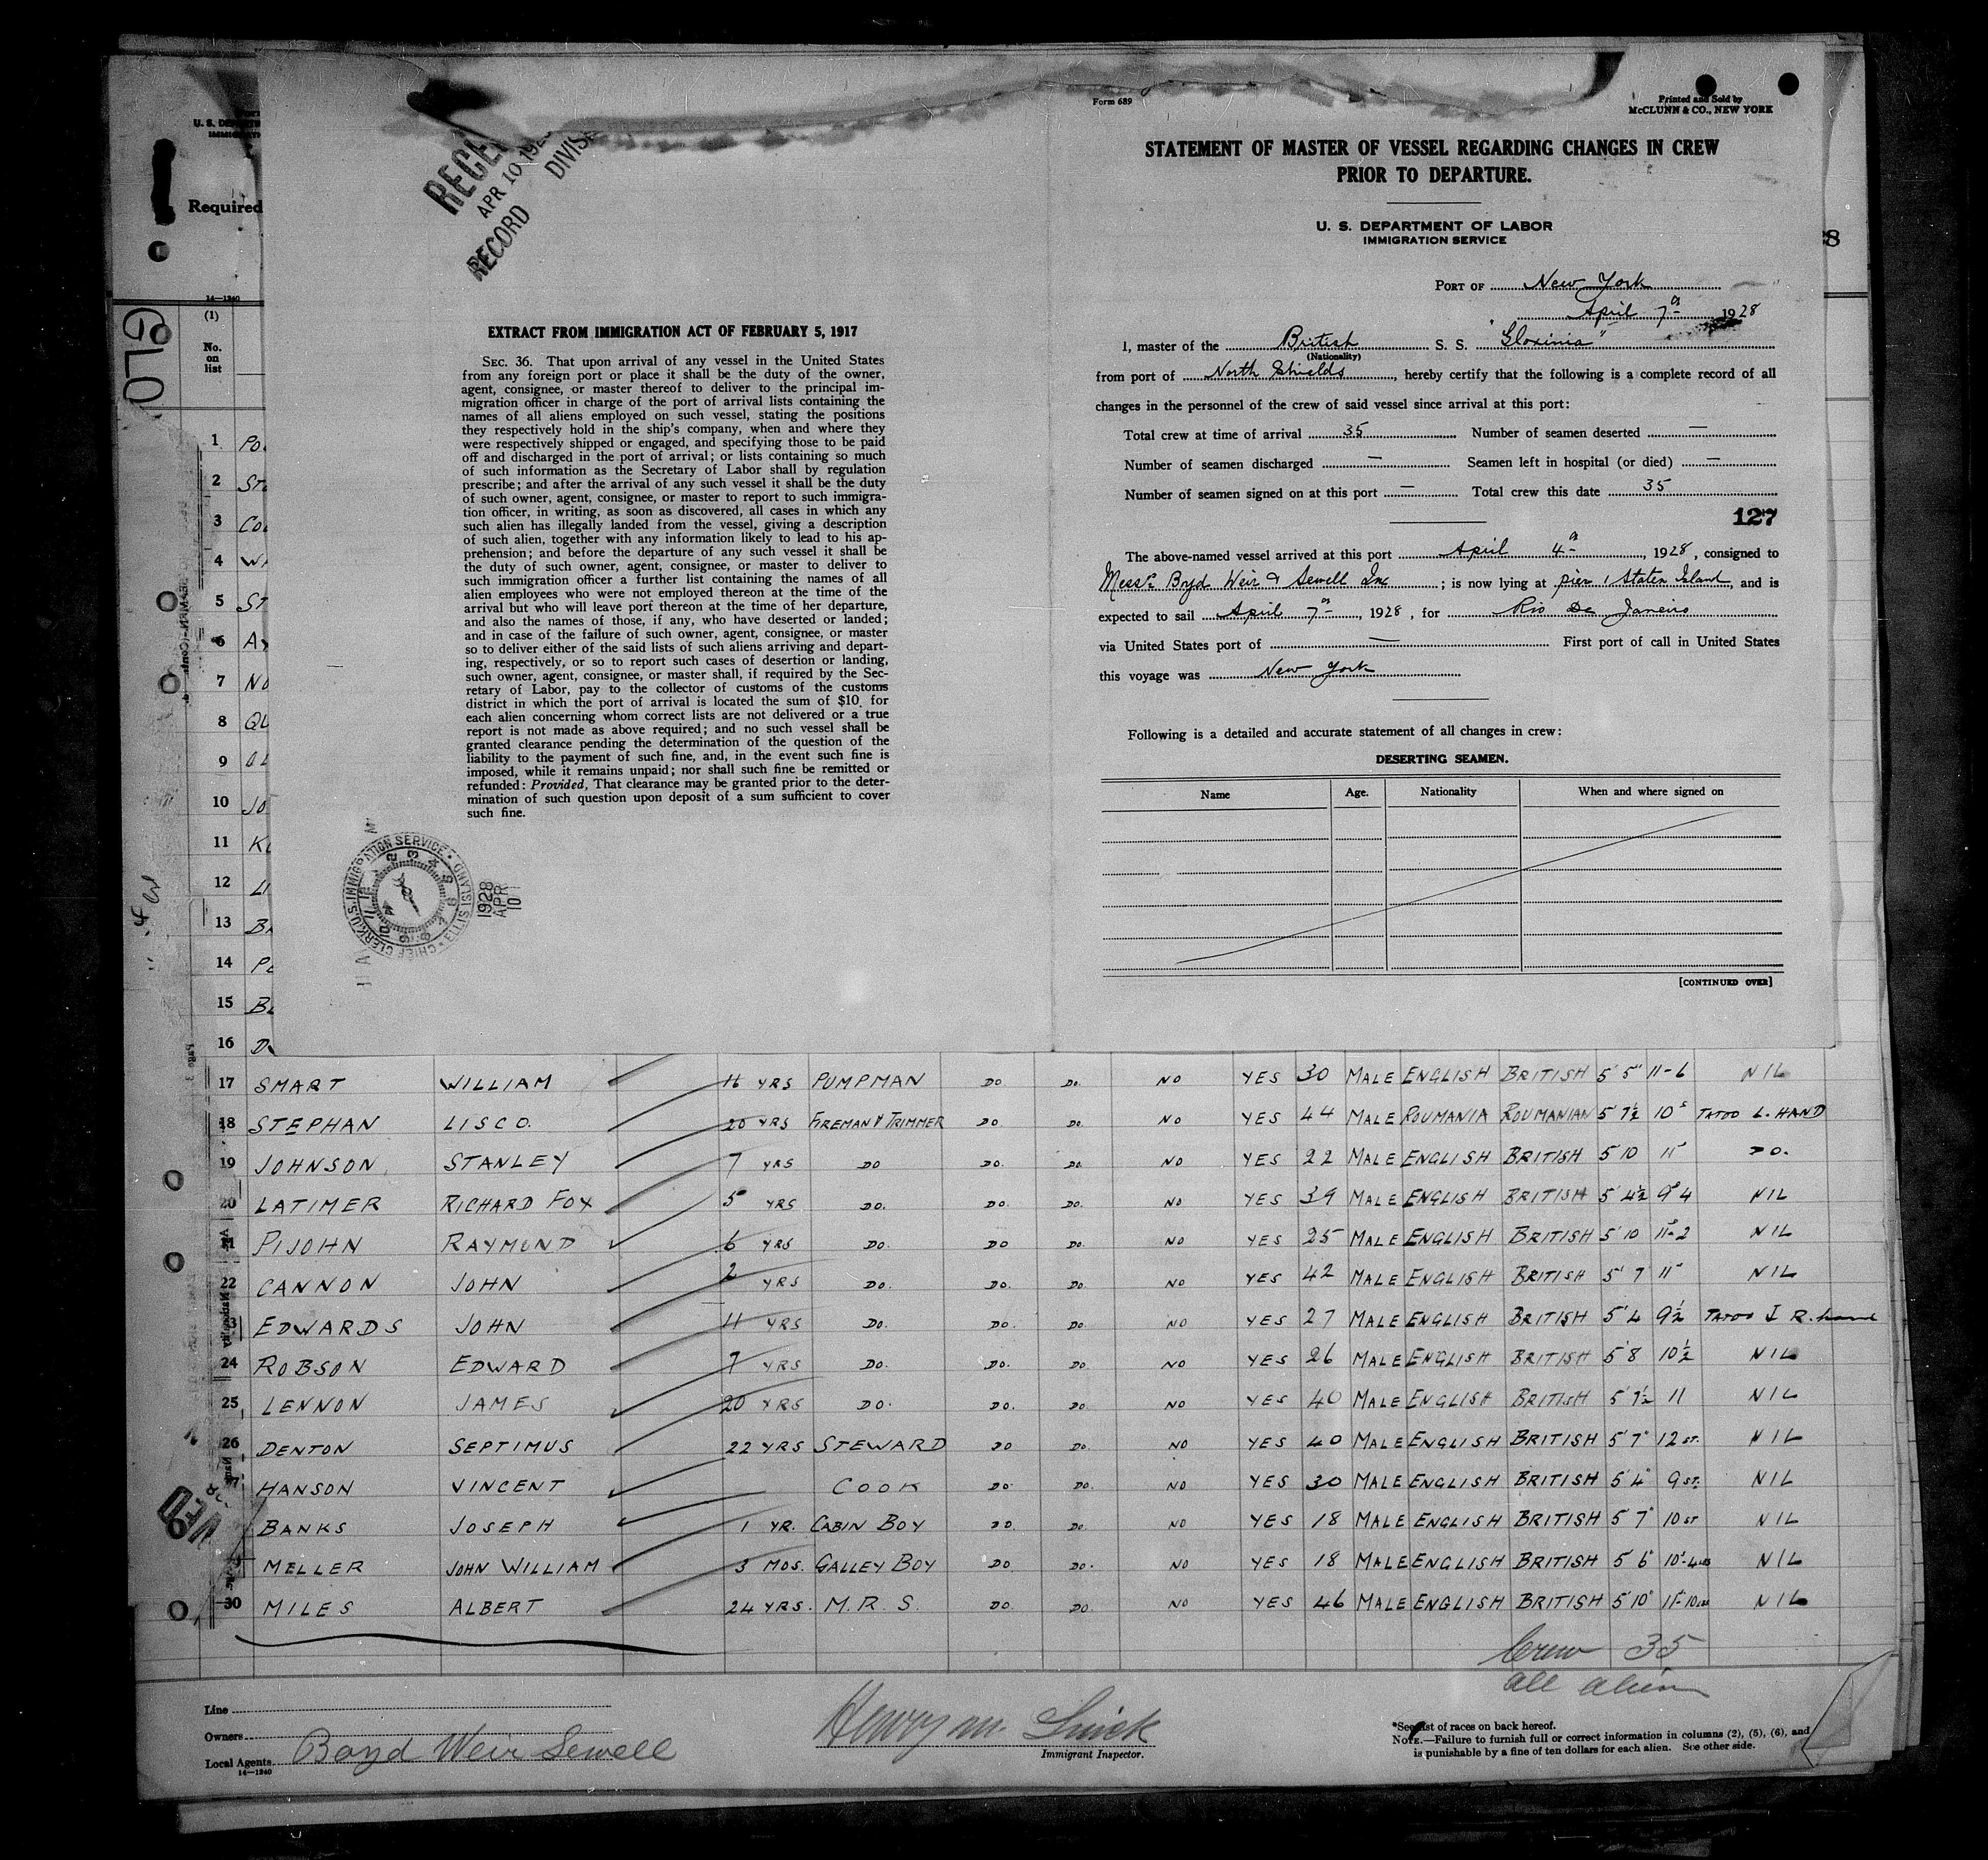 Form 689
Printed and Sold by
McCLUNN & CO., NEW YORK
RECORD
APR 10 192
EXTRACT FROM IMMIGRATION ACT OF FEBRUARY 5, 1917
SEC. 36. That upon arrival of any vessel in the United States
from any foreign port or place it shall be the duty of the owner,
agent, consignee, or master thereof to deliver to the principal im-
migration officer in charge of the port of arrival lists containing the
names of all aliens employed on such vessel, stating the positions
they respectively hold in the ship's company, when and where they
were respectively shipped or engaged, and specifying those to be paid
off and discharged in the port of arrival; or lists containing so much
of such information as the Secretary of Labor shall by regulation
prescribe; and after the arrival of any such vessel it shall be the duty
of such owner, agent, consignee, or master to report to such immigra-
tion officer, in writing, as soon as discovered, all cases in which any
such alien has illegally landed from the vessel, giving a description
of such alien, together with any information likely to lead to his ap-
prehension; and before the departure of any such vessel it shall be
the duty of such owner, agent, consignee, or master to deliver to
such immigration officer a further list containing the names of all
alien employees who were not employed thereon at the time of the
arrival but who will leave port thereon at the time of her departure,
and also the names of those, if any, who have deserted or landed;
and in case of the failure of such owner, agent, consignee, or master
so to deliver either of the said lists of such aliens arriving and depart-
ing, respectively, or so to report such cases of desertion or landing,
such owner, agent, consignee, or master shall, if required by the Sec-
retary of Labor, pay to the collector of customs of the customs
district in which the port of arrival is located the sum of $10 for
each alien concerning whom correct lists are not delivered or a true
report is not made as above required; and no such vessel shall be
granted clearance pending the determination of the question of the
liability to the payment of such fine, and, in the event such fine is
imposed, while it remains unpaid; nor shall such fine be remitted or
refunded: Provided, That clearance may be granted prior to the deter-
mination of such question upon deposit of a sum sufficient to cover
such fine.
CHIEF CLERK U.S. IMMIGRATION SERVICE · ELLIS ISLAND
1928
APR
10
STATEMENT OF MASTER OF VESSEL REGARDING CHANGES IN CREW
PRIOR TO DEPARTURE.
U. S. DEPARTMENT OF LABOR
IMMIGRATION SERVICE
PORT OF New York
April 7th 1928
I, master of the British S. S. "Gloxinia"
(Nationality)
from port of North Shields, hereby certify that the following is a complete record of all
changes in the personnel of the crew of said vessel since arrival at this port:
Total crew at time of arrival 35 Number of seamen deserted —
Number of seamen discharged — Seamen left in hospital (or died) —
Number of seamen signed on at this port — Total crew this date 35
127
The above-named vessel arrived at this port April 4th, 1928, consigned to
Messrs Boyd Weir & Sewell Inc; is now lying at pier 1 Staten Island, and is
expected to sail April 7th, 1928, for Rio De Janeiro
via United States port of — First port of call in United States
this voyage was New York
Following is a detailed and accurate statement of all changes in crew:
DESERTING SEAMEN.
Name Age. Nationality When and where signed on
[CONTINUED OVER]
Required
14—1240
GLO
(1)
No.
on
list
1 PO
2 ST
3 CO
4 W
5 ST
6 A
7 NO
8 QU
9
10 JO
11 K
12 LI
13 B
14 P
15 B
16 D
17 SMART WILLIAM 16 YRS PUMPMAN DO DO. NO YES 30 MALE ENGLISH BRITISH 5' 5" 11-6 NIL
18 STEPHAN LISCO. 20 YRS FIREMAN & TRIMMER DO DO. NO YES 44 MALE ROUMANIA ROUMANIAN 5 7½ 10 TATOO L. HAND
19 JOHNSON STANLEY 7 YRS DO DO. DO. NO YES 22 MALE ENGLISH BRITISH 5 10 11 DO.
20 LATIMER RICHARD FOX 5 YRS DO. DO. DO. NO YES 39 MALE ENGLISH BRITISH 5' 4½ 9 4 NIL
21 PIJOHN RAYMOND 6 YRS DO. DO DO. NO YES 25 MALE ENGLISH BRITISH 5' 10 11-2 NIL
22 CANNON JOHN 2 YRS DO. DO. DO. NO YES 42 MALE ENGLISH BRITISH 5' 7 11 NIL
23 EDWARDS JOHN 11 YRS DO. DO. DO. NO YES 27 MALE ENGLISH BRITISH 5' 4 9½ TATOO I R. hand
24 ROBSON EDWARD 7 YRS DO. DO. DO. NO YES 26 MALE ENGLISH BRITISH 5'8 10½ NIL
25 LENNON JAMES 20 YRS DO. DO. DO. NO YES 40 MALE ENGLISH BRITISH 5' 7½ 11 NIL
26 DENTON SEPTIMUS 22 YRS STEWARD DO DO. NO YES 40 MALE ENGLISH BRITISH 5' 7" 12 ST. NIL
27 HANSON VINCENT COOK DO DO. NO YES 30 MALE ENGLISH BRITISH 5' 4" 9 ST. NIL
BANKS JOSEPH 1 YR. CABIN BOY DO. DO. NO YES 18 MALE ENGLISH BRITISH 5 7" 10 ST NIL
MELLER JOHN WILLIAM 3 MOS. GALLEY BOY DO DO. NO YES 18 MALE ENGLISH BRITISH 5 6" 10-4 NIL
30 MILES ALBERT 24 YRS. M.R.S. DO. DO NO YES 46 MALE ENGLISH BRITISH 5' 10" 11-10 NIL
Crew 35
all alien
Line
Owners
Local Agents Boyd Weir Sewell
14—1240
Immigrant Inspector.
*See list of races on back hereof.
NOTE.—Failure to furnish full or correct information in columns (2), (5), (6), and
is punishable by a fine of ten dollars for each alien. See other side.